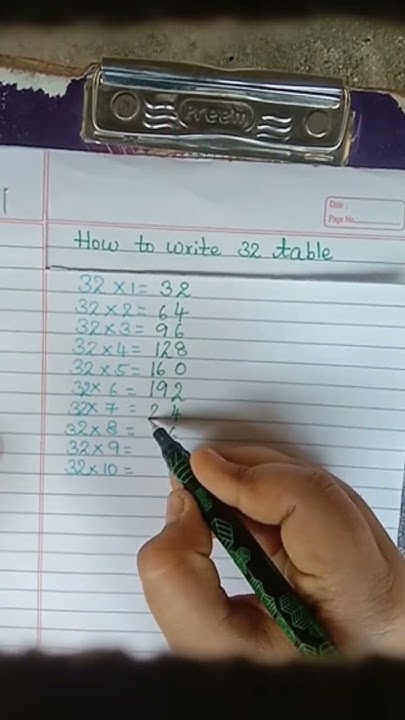 Preem
Date :
Page No.
How to write 32 table
32 × 1 = 32
32 × 2 = 64
32 × 3 = 96
32 × 4 = 128
32 × 5 = 160
32 × 6 = 192
32 × 7 = 2 4
32 × 8 =
32 × 9 =
32 × 10 =